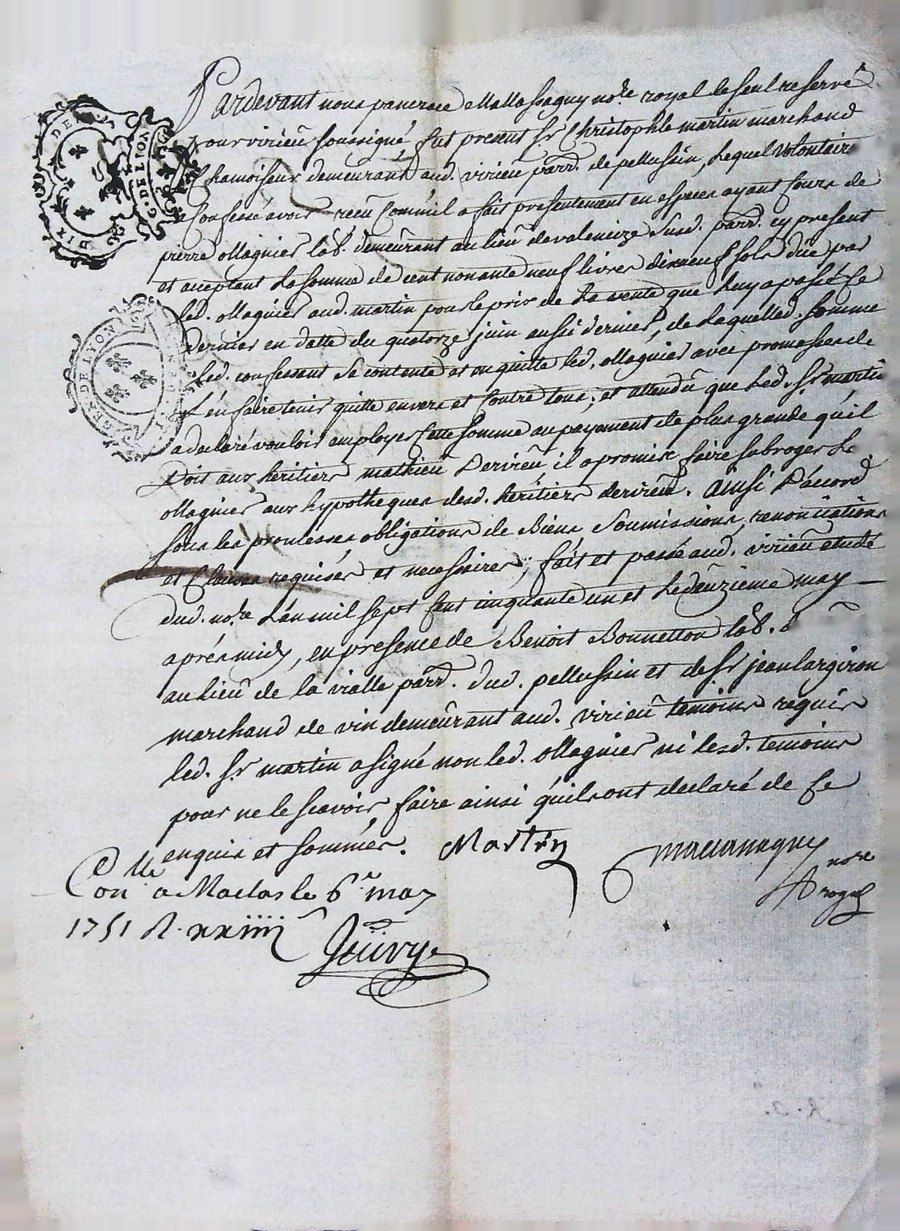 DE
G. DE LION
DIR
GEN. DE LYON
Pardevant nous pancrace Mallassagny no.re royal le seul reservé
pour virieu soussigné fut present Sr. Christophle martin marchand
Chamoiseur demeurant aud. virieu parr. de pellussin, Lequel volontaire
a Confessé avoir reçeu Comm'il a fait presentement en especes ayant Cours de
pierre ollagnier lab. demeurant au lieu de valencize Susd. parr. cy present
et aceptant La somme de cent nonante neuf livres dixneuf sols düe par
led. ollagnier aud. martin pour le prix de La vente que Luy a passé Le
dernier en datte du quatorze juin aussi dernier, de Laquelle d. somme
Led. confessant Se contente et en quitte led. ollagnier avec promesses de
L'en faire tenir quitte envers et Contre tous; et attendu que Led. Sr. martin
a declaré vouloir employer Cette somme au payement de plus grande qu'il
Doit aux heritiers mathieu Dervieu il a promis faire subroger Le
ollagnier aux hypotheques desd. heritiers dervieu. Ainsi D'acord
sous les promesses obligations de Biens Soumissions, renonciations
et Clauses requises et necessaires; fait et passé aud. virieu etude
dud. no.re L'an mil sept cent cinquante un et Le deuzieme may
aprés midy, en presence de Benoit Bonnetton lab. d
au lieu de la vialle parr. dud. pellussin et de Sr. jean largiron
marchand de vin demeurant aud. virieu temoins requis
led. Sr. martin a signé non led. ollagnier ni lesd. temoins
pour ne le scavoir faire ainsi qu'ils ont declaré de ce
enquis et sommés. Martin
mallassagny
no.re
royal
Con.lle a Maclas le 6.e may
1751 R. xxiiii s
Jeüvry